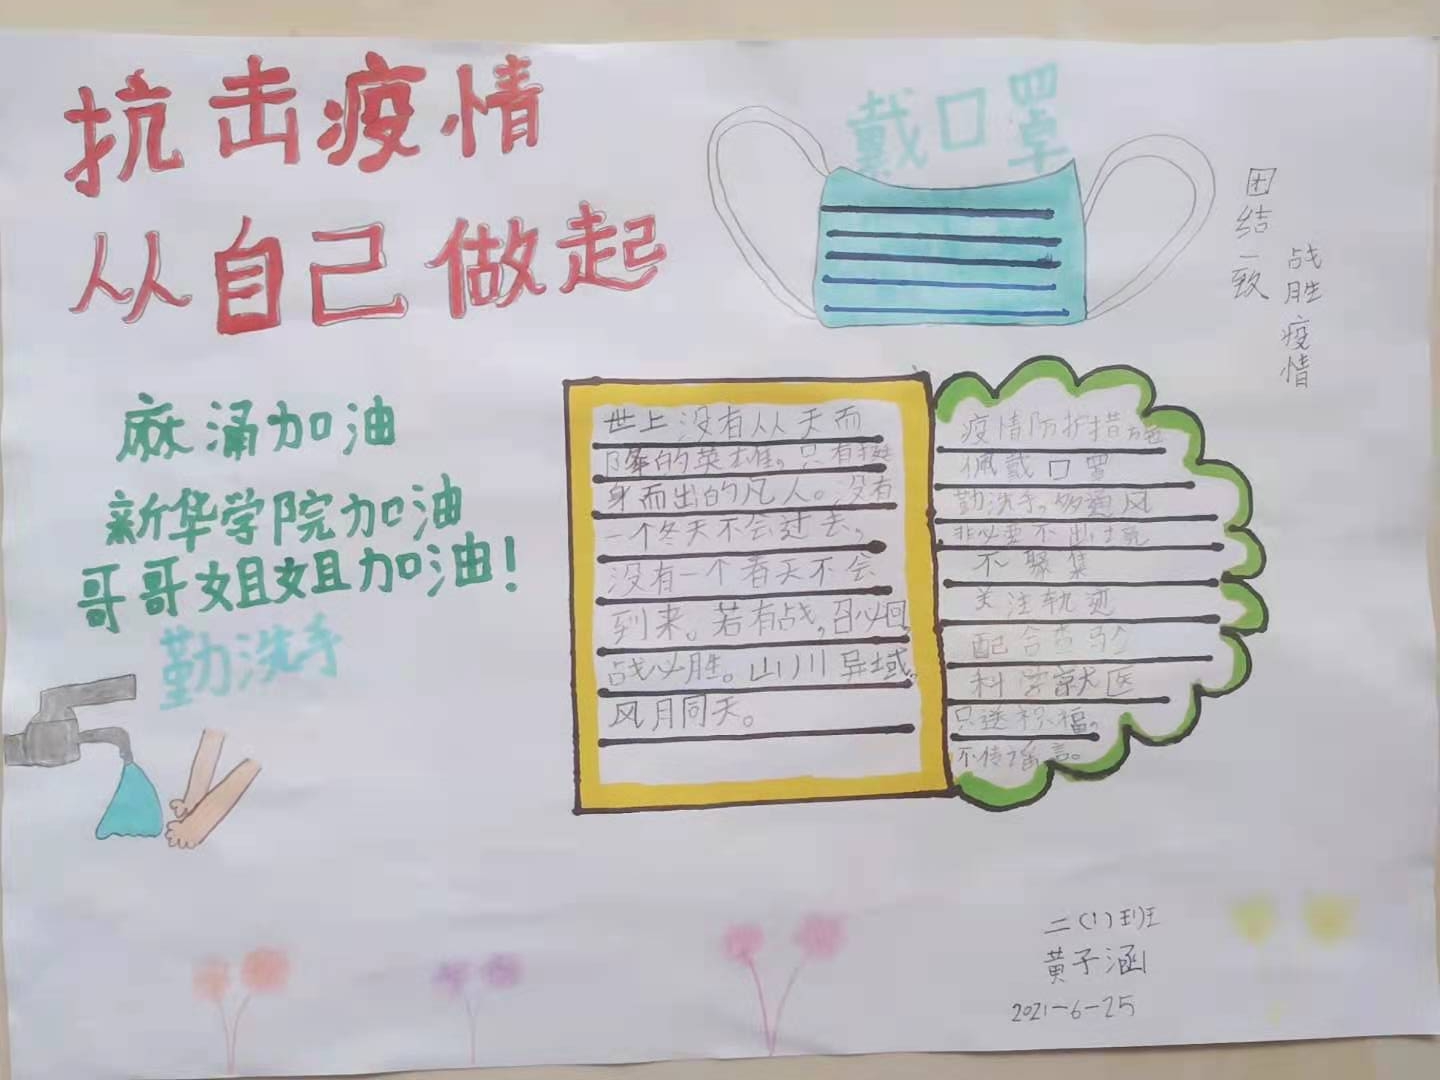 抗击疫情
从自己做起
戴口罩
团结一致
战胜疫情
麻涌加油
新华学院加油
哥哥姐姐加油！
勤洗手
世上没有从天而
降的英雄，只有挺
身而出的凡人。没有
一个冬天不会过去，
没有一个春天不会
到来。若有战，召必回，
战必胜。山川异域，
风月同天。
疫情防护措施
佩戴口罩
勤洗手，多通风
非必要不出境
不聚集
关注轨迹
配合查验
科学就医
只送祝福，
不传谣言。
二（1）班
黄子涵
2021-6-25